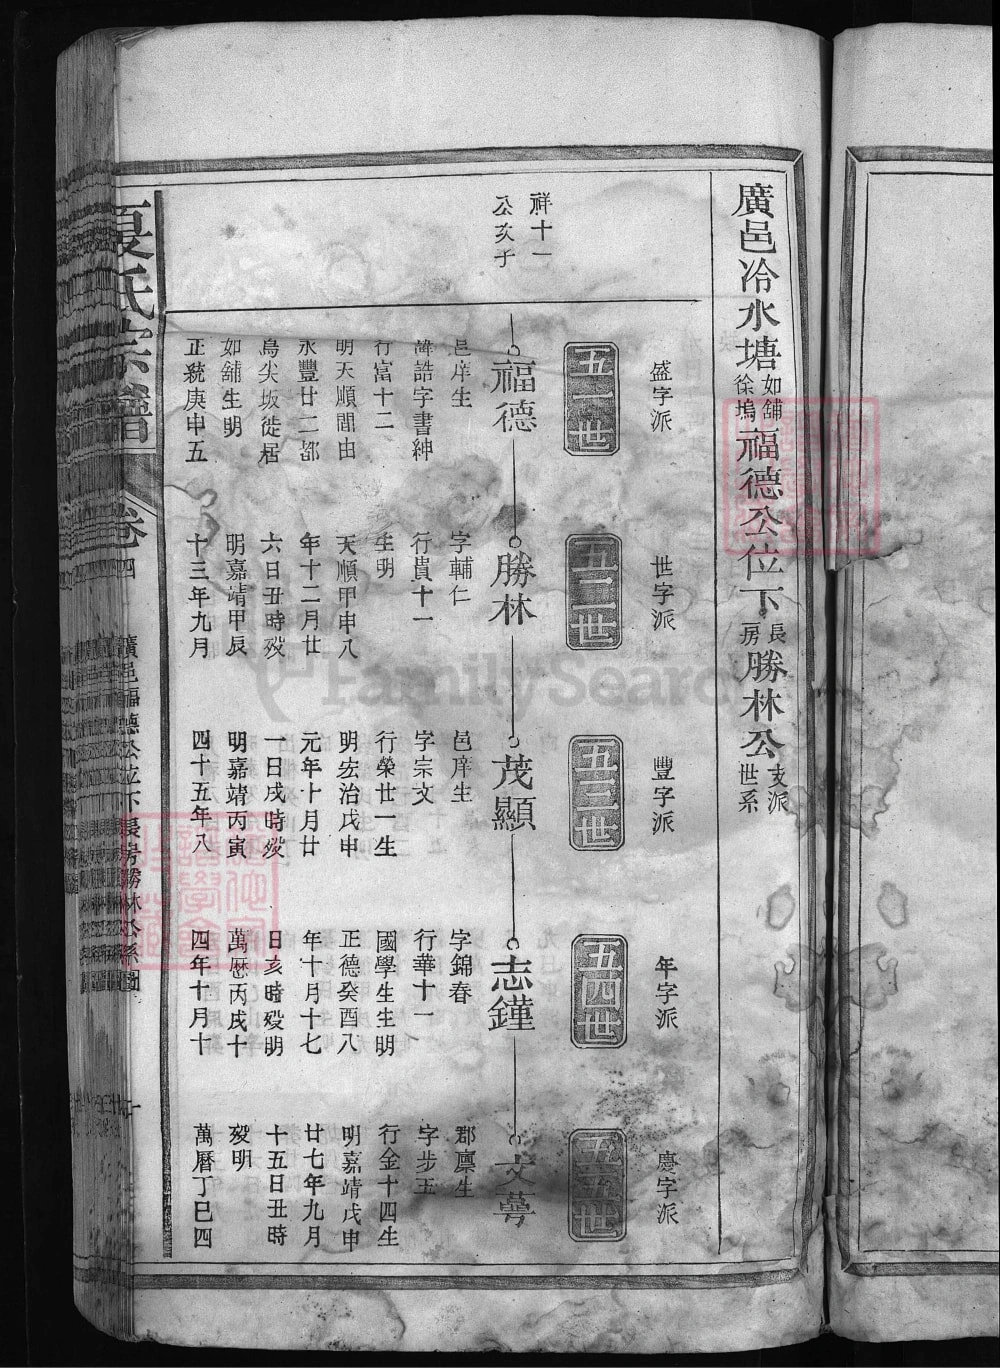 廣邑冷水塘如舖徐塢福德公位下長房勝林公支派世系
祥十一
公亥子
盛字派
五一世
福德
邑庠生
諱誥字書紳
行富十二
明天順間由
永豐廿二都
烏尖坂徙居
如舖生明
正統庚申五
世字派
五二世
勝林
字輔仁
行貴十一
生明
天順甲申八
年十二月廿
六日丑時殁
明嘉靖甲辰
十三年九月
豐字派
五三世
茂顯
邑庠生
字宗文
行榮廿一生
明宏治戊申
元年十月廿
一日戌時殁
明嘉靖丙寅
四十五年八
年字派
五四世
志鐘
字錦春
行華十一
國學生生明
正德癸酉八
年十月十七
日亥時殁明
萬厯丙戌十
四年十月十
慶字派
五五世
文
郡廩生
字步玉
行金十四生
明嘉靖戊申
廿七年九月
十五日丑時
殁明
萬曆丁巳四
夏氏宗譜
卷四
廣邑福德公位下長房勝林公系圖
FamilySearch